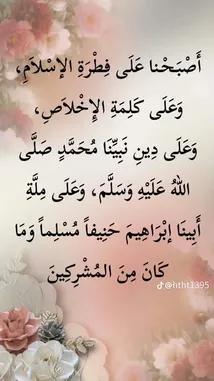 أَصْبَحْنا عَلَى فِطْرَةِ الإسْلاَمِ،
وَعَلَى كَلِمَةِ الإِخْلاَصِ،
وَعَلَى دِينِ نَبِيِّنَا مُحَمَّدٍ صَلَّى
اللهُ عَلَيْهِ وَسَلَّمَ، وَعَلَى مِلَّةِ
أَبِينَا إبْرَاهِيمَ حَنِيفاً مُسْلِماً وَمَا
كَانَ مِنَ المُشْرِكِينَ
@htht1395